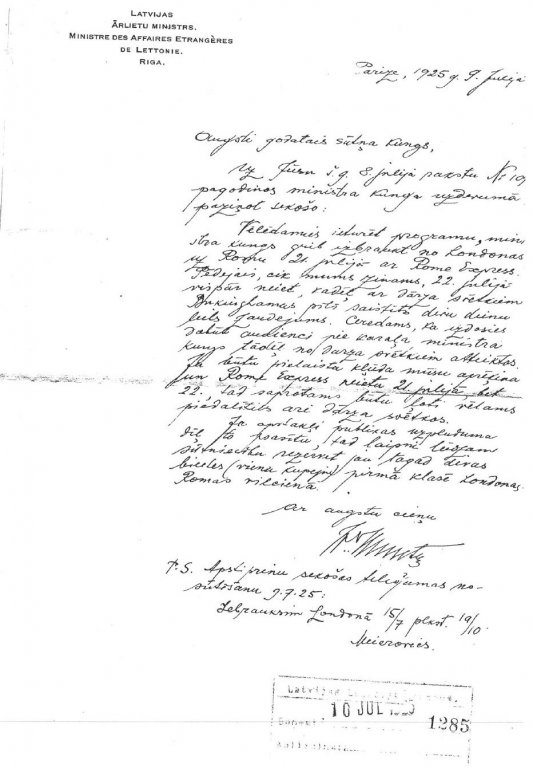 LATVIJAS
ĀRLIETU MINISTRS.
MINISTRE DES AFFAIRES ETRANGÈRES
DE LETTONIE.
RIGA.
Parīzē, 1925 g. 9. jūlijā
Augsti godātais sūtņa kungs,
Uz Jūsu š.g. 8. jūlijā rakstu № 10,
pagodinos ministra kunga uzdevumā
paziņot sekošo:
Vēlēdamies ieturēt programu, mini-
stra kungs grib izbraukt no Londonas
uz Romu 21. jūlijā ar Rome Express.
Pēdējais, cik mums zināms, 22. jūlijā
vispār neiet, kādēļ ar dārza svētkiem
Bukinghamas pilī saistīts divu dienu
laika zaudējums. Cerēdams, ka izdosies
dabūt audienci pie karaļa ministra
kungs tādēļ no dārza svētkiem atteiktos.
Ja būtu pielaista kļūda mūsu aprēķinā
un Rome Express neietu 21. jūlijā, bet
22., tad saprotams būtu ļoti vēlams
piedalīties arī dārza svētkos.
Ja apstākļi publikas uzplūduma
dēļ to prasītu, tad laipni lūdzam
sūtniecību rezervēt jau tagad divas
biļetes (vienu kupeju) pirmā klasē Londonas
Romas vilcienā.
Ar augstu cieņu
P.S. Apstiprinu sekošās telegramas no-
sūtīšanu 9.7.25:
Iebrauksim Londonā 15/7 plkst. 19/10.
Meierovics.
Latvijas
10 JUL
1285